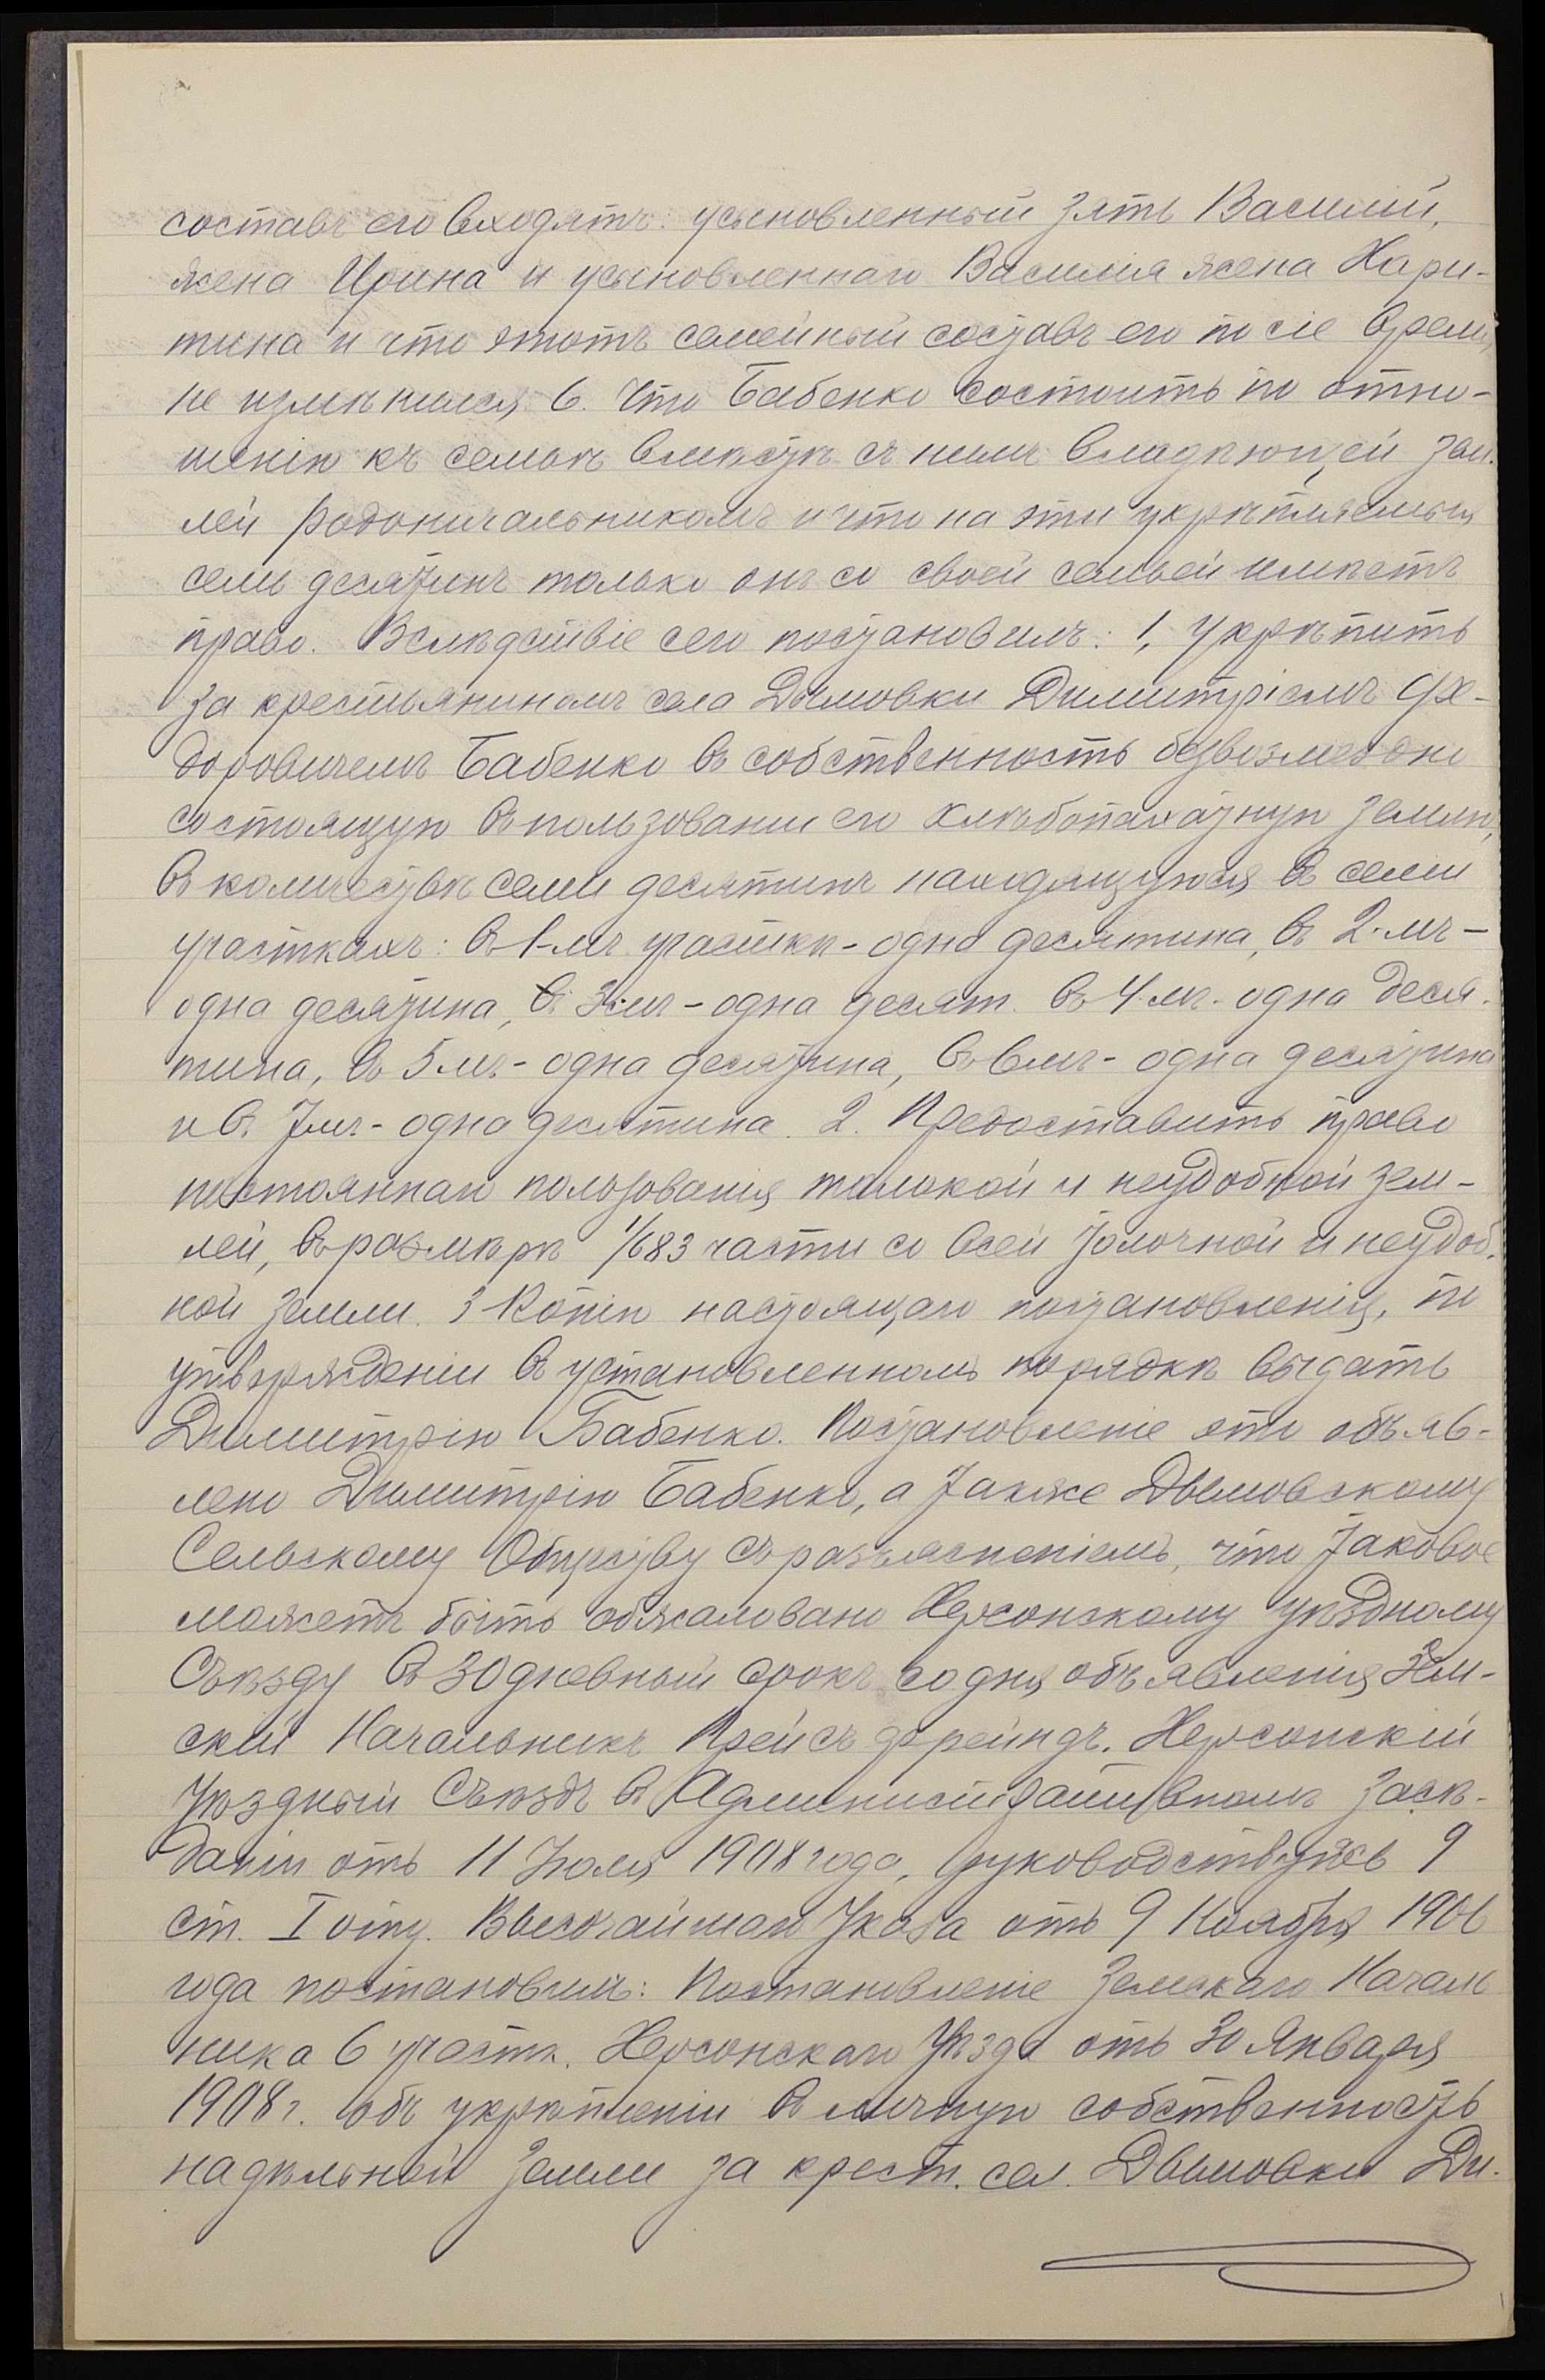 составъ его входятъ: усыновленный зять Василий,
жена Ирина и усыновленнаго Василія жена Хари-
тина и что этотъ семейный составъ его по сіе время
не измѣнился, 6. Что Бабенко состоитъ по отно-
шенію къ семьѣ вмѣстѣ съ нимъ владѣющей зем-
лей родоначальникомъ и что на эти укрѣпляемыя
семь десятинъ только онъ со своей семьей имѣетъ
право. Вслѣдствіе сего постановилъ: 1, Укрѣпить
за крестьяниномъ села Дымовки Димитріемъ Фе-
доровичемъ Бабенко въ собственность безвозмездно
состоящую въ пользовании его хлѣбопахатную землю,
въ количествѣ семи десятинъ находящуюся въ семи
участкахъ: въ 1-мъ участкѣ - одна десятина, въ 2-мъ -
одна десятина, въ 3-мъ - одна десят. въ 4-мъ - одна деся-
тина, въ 5мъ - одна десятина, въ 6мъ - одна десятина
и въ 7мъ - одна десятина. 2. Предоставить право
постояннаго пользованія толокой и неудобной зем-
лей, въ размѣрѣ 1/683 части со всей толочной и неудоб-
ной земли. 3 Копію настоящаго постановленія, по
утвержденіи въ установленномъ порядкѣ выдать
Димитрію Бабенко. Постановленіе это объяв-
лено Димитрію Бабенко, а также Дымовскому
Сельскому Обществу съ разъясненіемъ, что таковое
можетъ быть обжаловано Херсонскому уѣздному
Съѣзду въ 30 дневный срокъ со дня объявленія Зем-
скій Начальникъ Прейсъ фрейндъ. Херсонскій
Уѣздный Съѣздъ въ Административномъ засѣ-
даніи отъ 11 Іюля 1908 года, руководствуясь 9
ст. I отд. Высочайшаго Указа отъ 9 Ноября 1906
года постановилъ: Постановленіе Земскаго Началь
ника 6 участк. Херсонскаго Уѣзда отъ 30 Января
1908 г. объ укрѣпленіи въ личную собственность
надѣльной земли за крест. сел. Дымовки Ди-